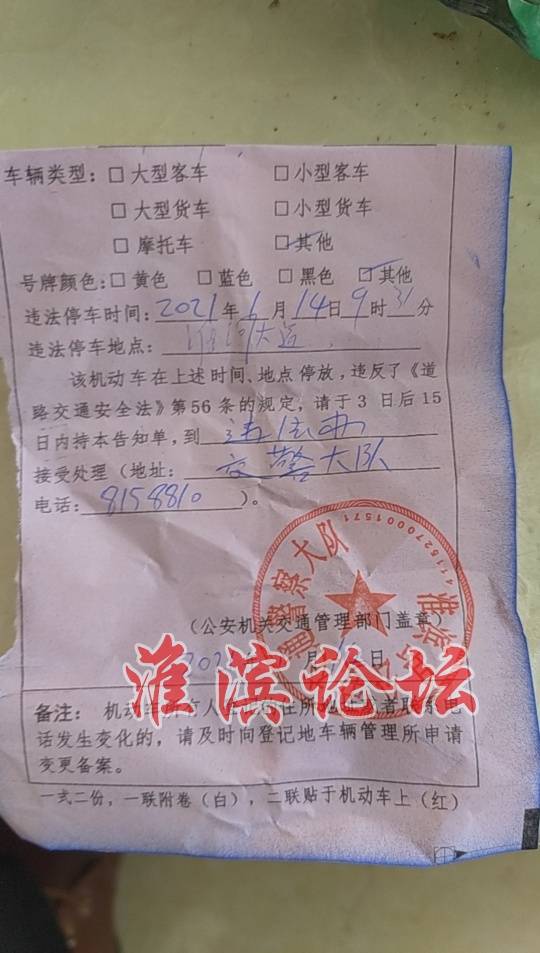 车辆类型：□ 大型客车 □ 小型客车
□ 大型货车 □ 小型货车
□ 摩托车 □ 其他
号牌颜色：□ 黄色 □ 蓝色 □ 黑色 □ 其他
违法停车时间：2021年6月14日9时31分
违法停车地点：淮河大道
该机动车在上述时间、地点停放，违反了《道
路交通安全法》第56条的规定，请于3日后15
日内持本告知单，到
接受处理（地址：交警大队
电话：8158810）。
警察大队
4115270001571
（公安机关交通管理部门盖章）
月 日
淮滨论坛
备注：机动车所有人
话发生变化的，请及时向登记地车辆管理所申请
变更备案。
一式二份，一联附卷（白），二联贴于机动车上（红）